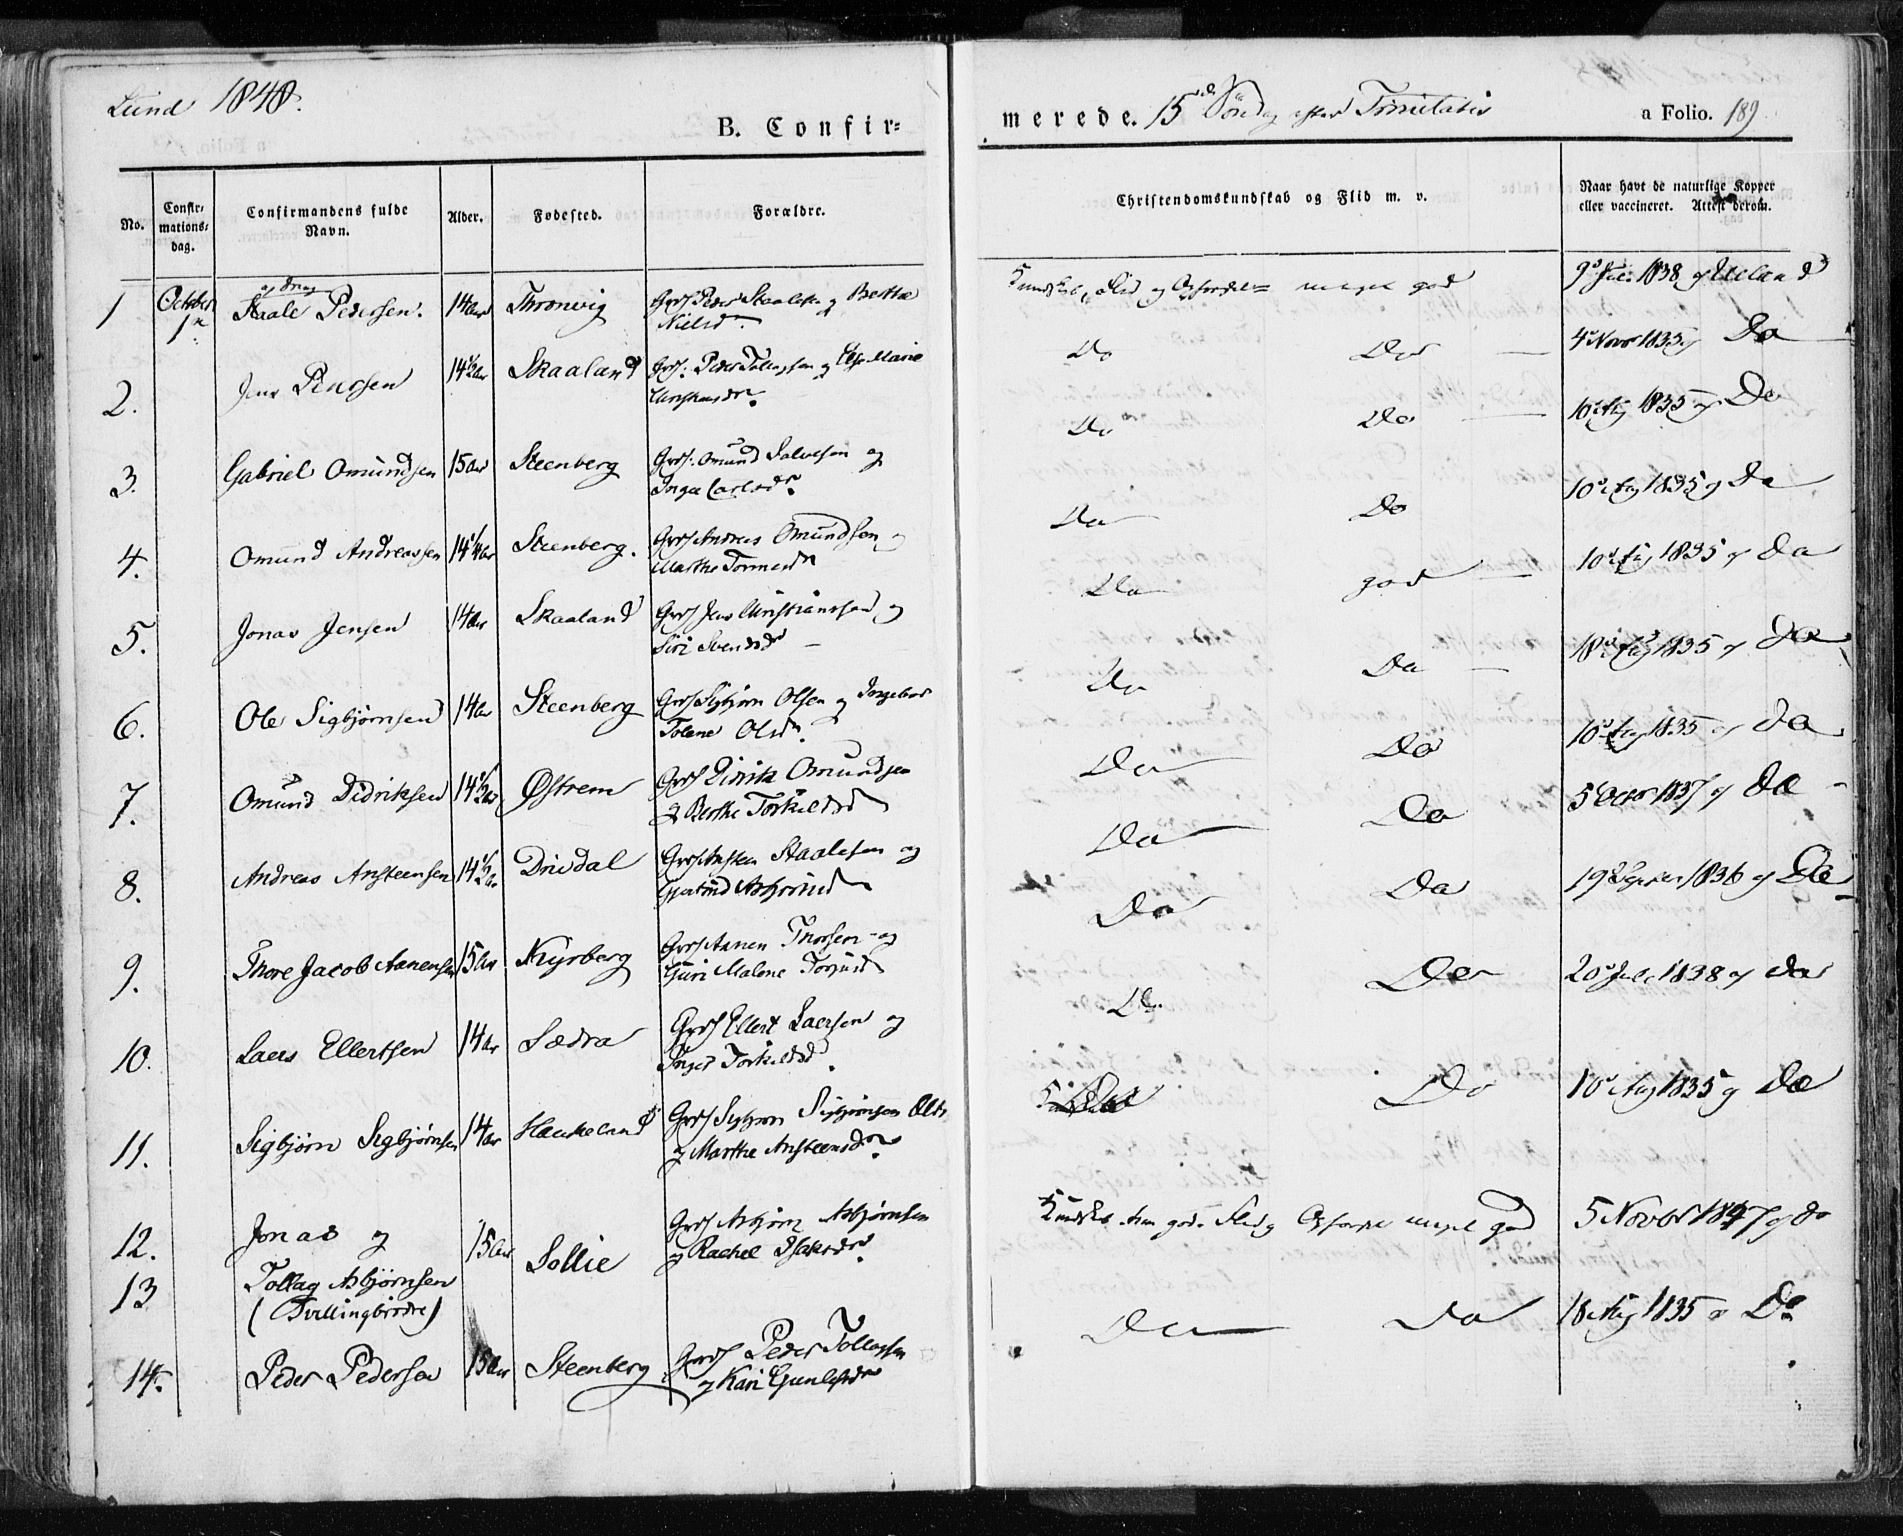 Lund 1848.
B. Confir=
merede. 15de Søndag efter Trinitatis
a Folio. 189
No.
Confir-
mations-
dag.
Confirmandens fulde
Navn.
Alder.
Fødested.
Forældre.
Christendomskundskab og Flid m. v.
Naar havt de naturlige Kopper
eller vaccineret. Attest derom.
1 October Staale Pedersen. 14 Aar Thronvig Grds Peder Staalesen og Berthe
1ste Nielsdr.
Kundskab, Flid og Opførsel meget god 1838 af Ueland
2. Jens Pedersen 14½ Aar Skaaland Grds. Peder Tollagsen og Else Marie
Christensdr.
Do Do 4 Novbr 1835 af Do
3. Gabriel Omundsen 15 Aar Steenberg Grds. Omund Salvesen og
Inger Carlsdr.
Do Do 10 Aug 1835 af Do
4. Omund Andreassen 14¼ Aar Steenberg. Grds Andreas Omundsen og
Marthe
Do Do 10 Aug 1835 af Do
5. Jonas Jensen 14 Aar Skaaland Grds Jens Christiansen og
Siri Svendsdr
Do god 10 Aug 1835 af Do
6. Ole Sigbjørnsen 14 Aar Steenberg Grds Sigbjørn Olsen og Ingebor
Tolene Olsdr.
Do Do 18 Aug 1835 af Do
7. Omund Didriksen 14½ Aar Østrem Grds Didrik Omundsen
og Berthe Torkildsd
Do Do 10 Aug 1835 af Do
8. Andreas Ansteensen 14½ Aar Drivdal Grds Ansten Staalesen og
Gjertrud
Do Do 5 Octbr 1837 af Do
9. Thore Jacob Aanensen 15 Aar Kyrberg Grds Aanen Thorsen og
Guri Malene
Do Do 19 Septbr 1836 af Do
10. Laers Ellertsen 14 Aar Sædra Grds Ellert Laersen og
Inger Torkildsd.
Do Do 20 Juli 1838 af Do
11. Sigbjørn Sigbjørnsen 14 Aar Haukeland Grds Sigbjørn Sigbjørnsen
og Marthe Ansteensdr.
Do Do 10 Aug 1835 af Do
12. Jonas og 15 Aar Sollie Grds Asbjørn Asbjørnsen
og Rachel Isaksdr.
Kundskab god. Flid og Opførsel meget god 5 Novbr 1847 af Do
13 Tollag Asbjørnsen
(Tvillingbrødre)
14. Peder Pedersen 15 Aar Steenberg Grds Peder Tollagsen
og Kari Gunlefsdr
Do Do 18 Aug 1835 af Do